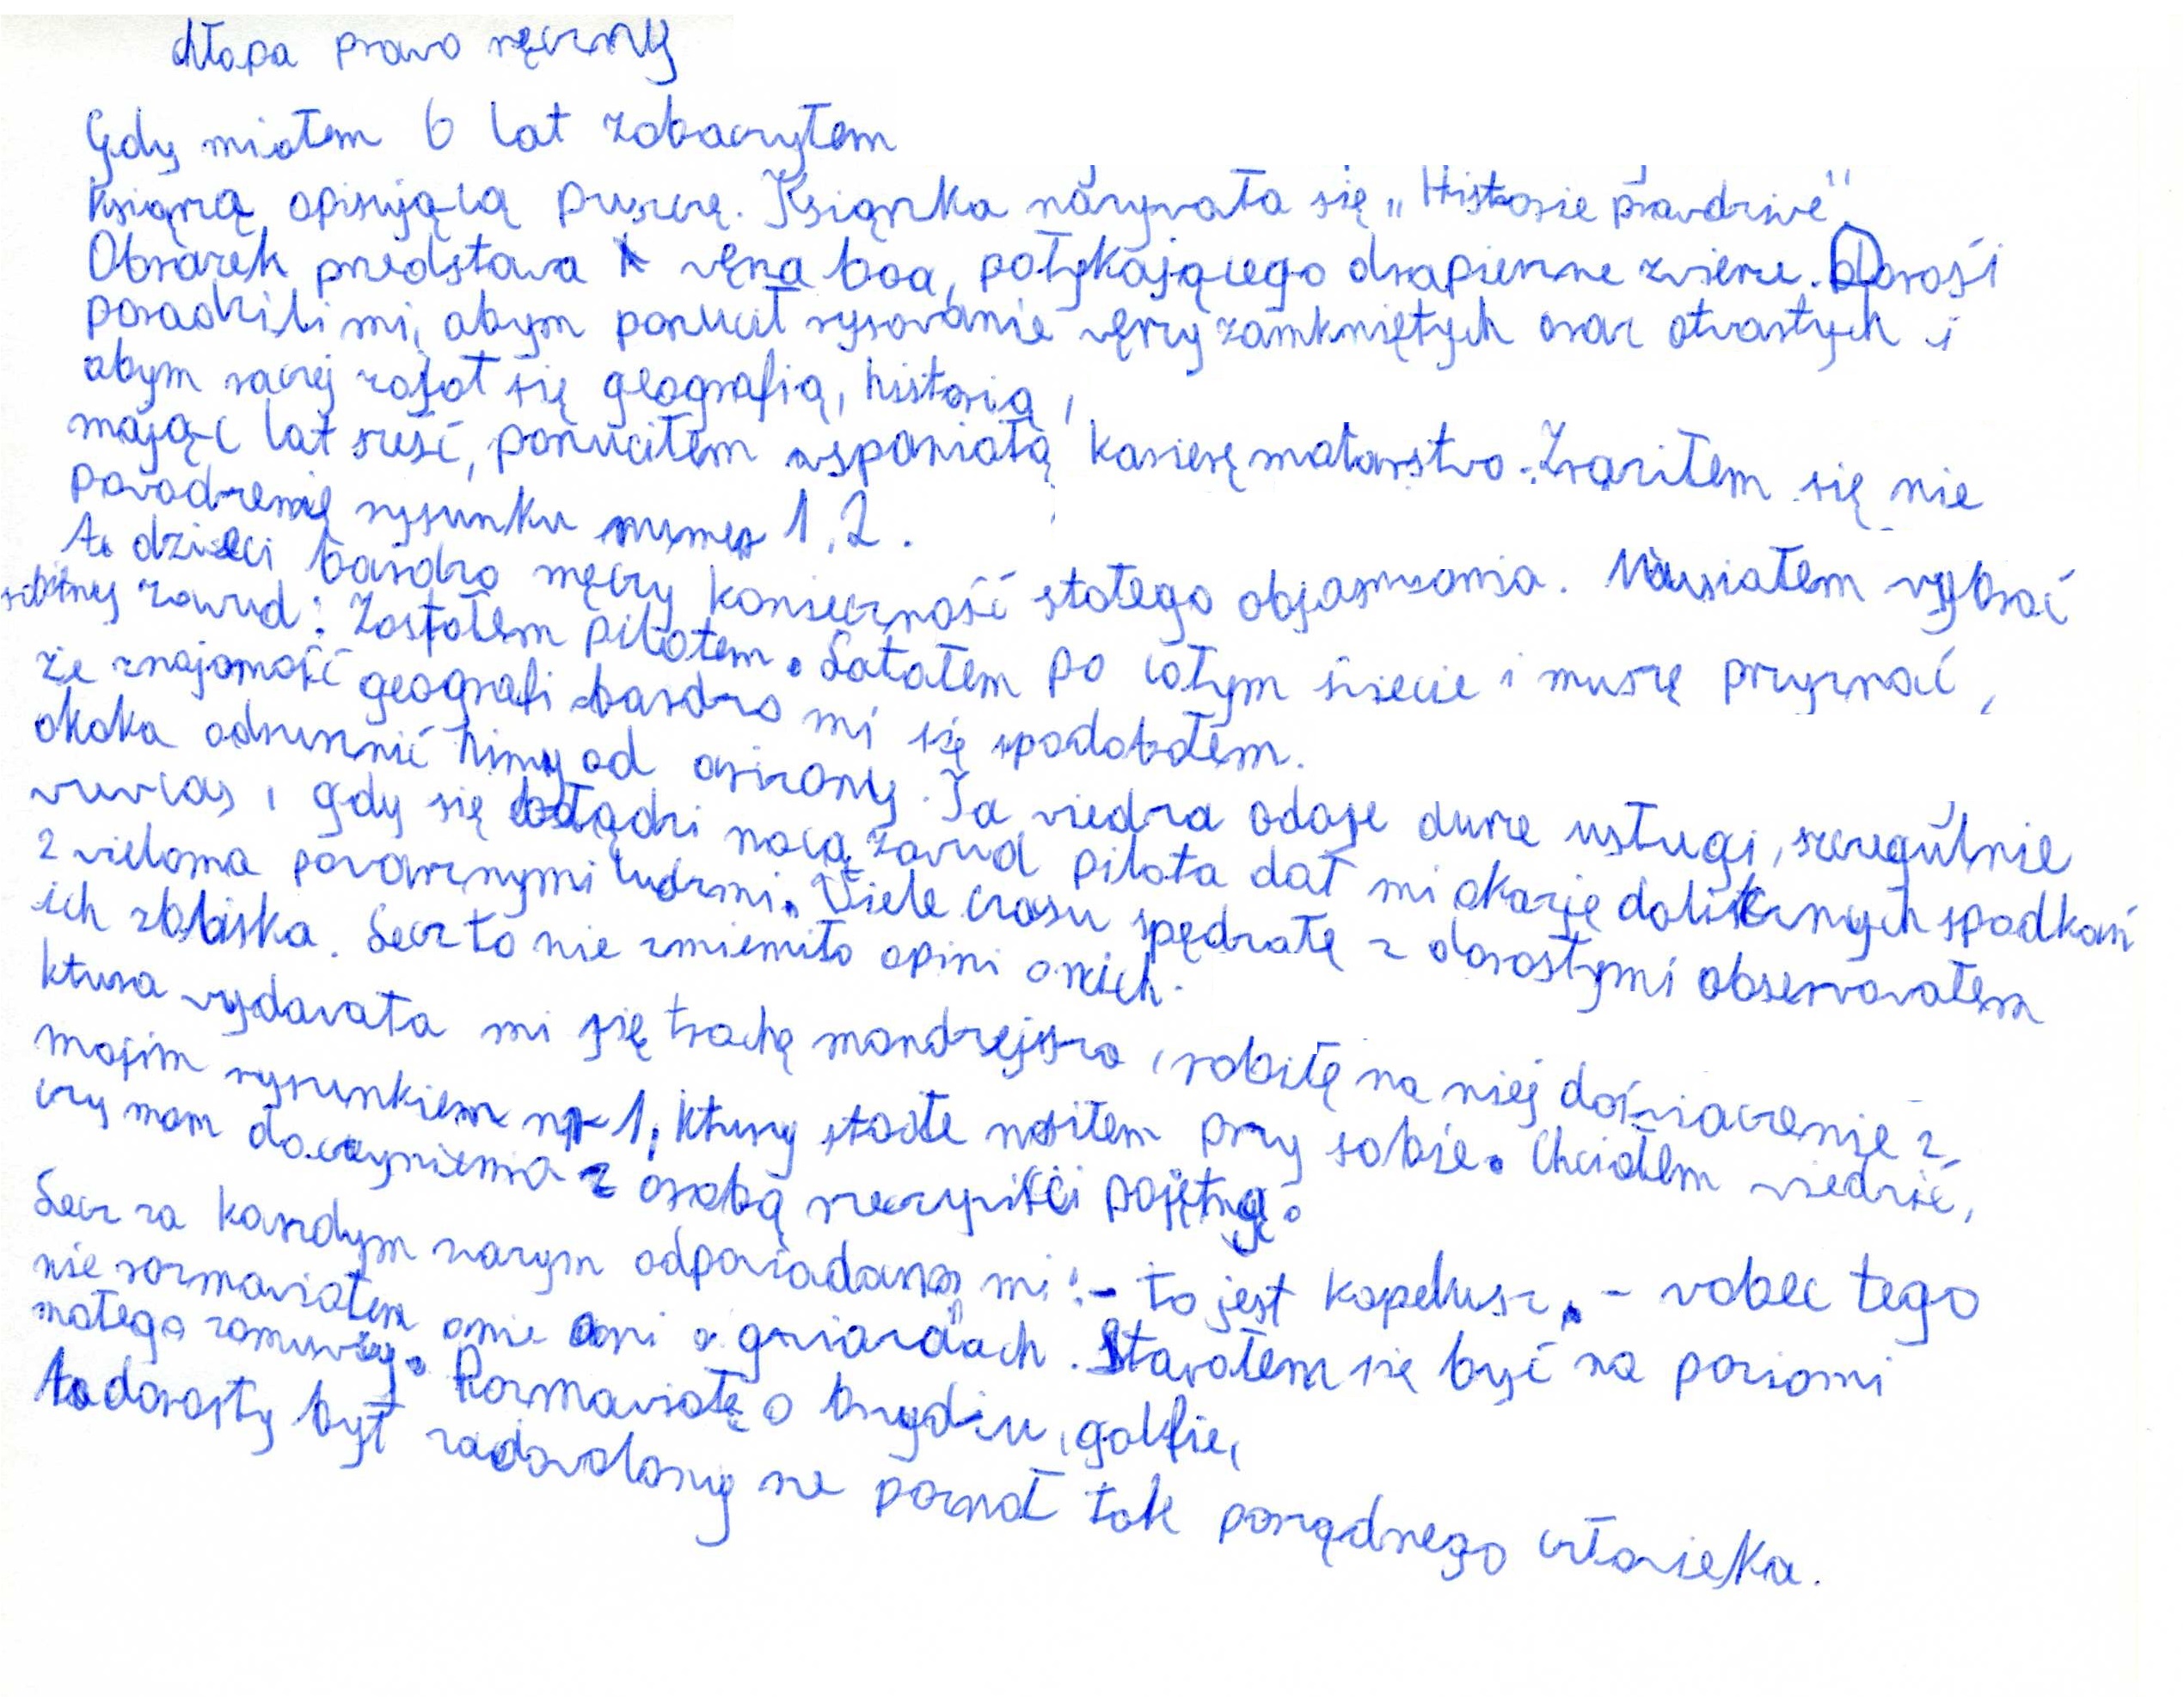 chłopa prawo ręczny
Gdy miałem 6 lat zobaczyłem
książą opisującą puszczę. Książka nazywała się „Historie prawdziwe".
Obrazek przedstawa węża boa, połykającego drapieżne zwierze. Dorośi
poradzili mi, abym porzucił rysowanie węży zamkniętych oraz otwartych i
abym raczej zajoł się geografią, historią,
mając lat sześć, porzuciłem wspaniałą karierę malarstwo. Zraziłem się nie
powodzenię rysunku numer 1, 2.
A dzieci bardzo męczy konieczność stałego objasniania. Musiałem wybrać
zawud: Zostałem pilotem. Latałem po całym śiecie i muszę przyznać,
że znajomość geografi bardzo mi się spodobałem.
okoka odrużnić hiny od arizony. Ta wiedza odaje duże usługi, szczegulnie
wuwczas, gdy się błądzi nocą zawud pilota dał mi okazję do licznych spodkań
z wieloma poważnymi ludzmi. Wiele czasu spędzałę z dorosłymi obserwowałem
ich zbliska. Lecz to nie zmieniło opini o nich.
ktura wydawała mi się trochę mondrejsza, robiłę na niej dośiaczenie z
mojim rysunkiem nr 1, ktury stale nosiłem przy sobie. Chciałem wiedzieć,
czy mam doczynienia z osobą rzeczyiści pojętną.
Lecz za karzdym razym odpowiadano mi: - to jest kapelusz. - wobec tego
nie rozmawiałem onie ani o gwiazdach. Starałem się być na poziomi
małego rozmuwcy. Rozmawiałę o brydżu, golfie,
A dorosły był zadowolony że poznał tak porządnego człowieka.